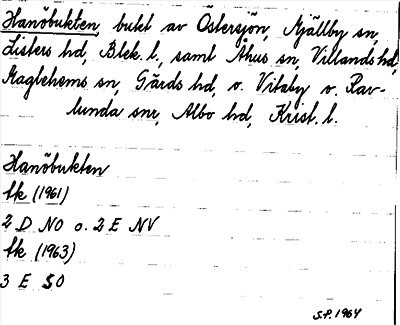 Hanöbukten, bukt av Östersjön, Mjällby sn,
Listers hd, Blek. l., samt Åhus sn, Villands hd,
Maglehems sn, Gärds hd, o. Vitaby o. Rav-
lunda snr, Albo hd, Krist. l.
Hanöbukten
Ek (1961)
2 D NO o. 2 E NV
Ek (1963)
3 E SO
S.P. 1964